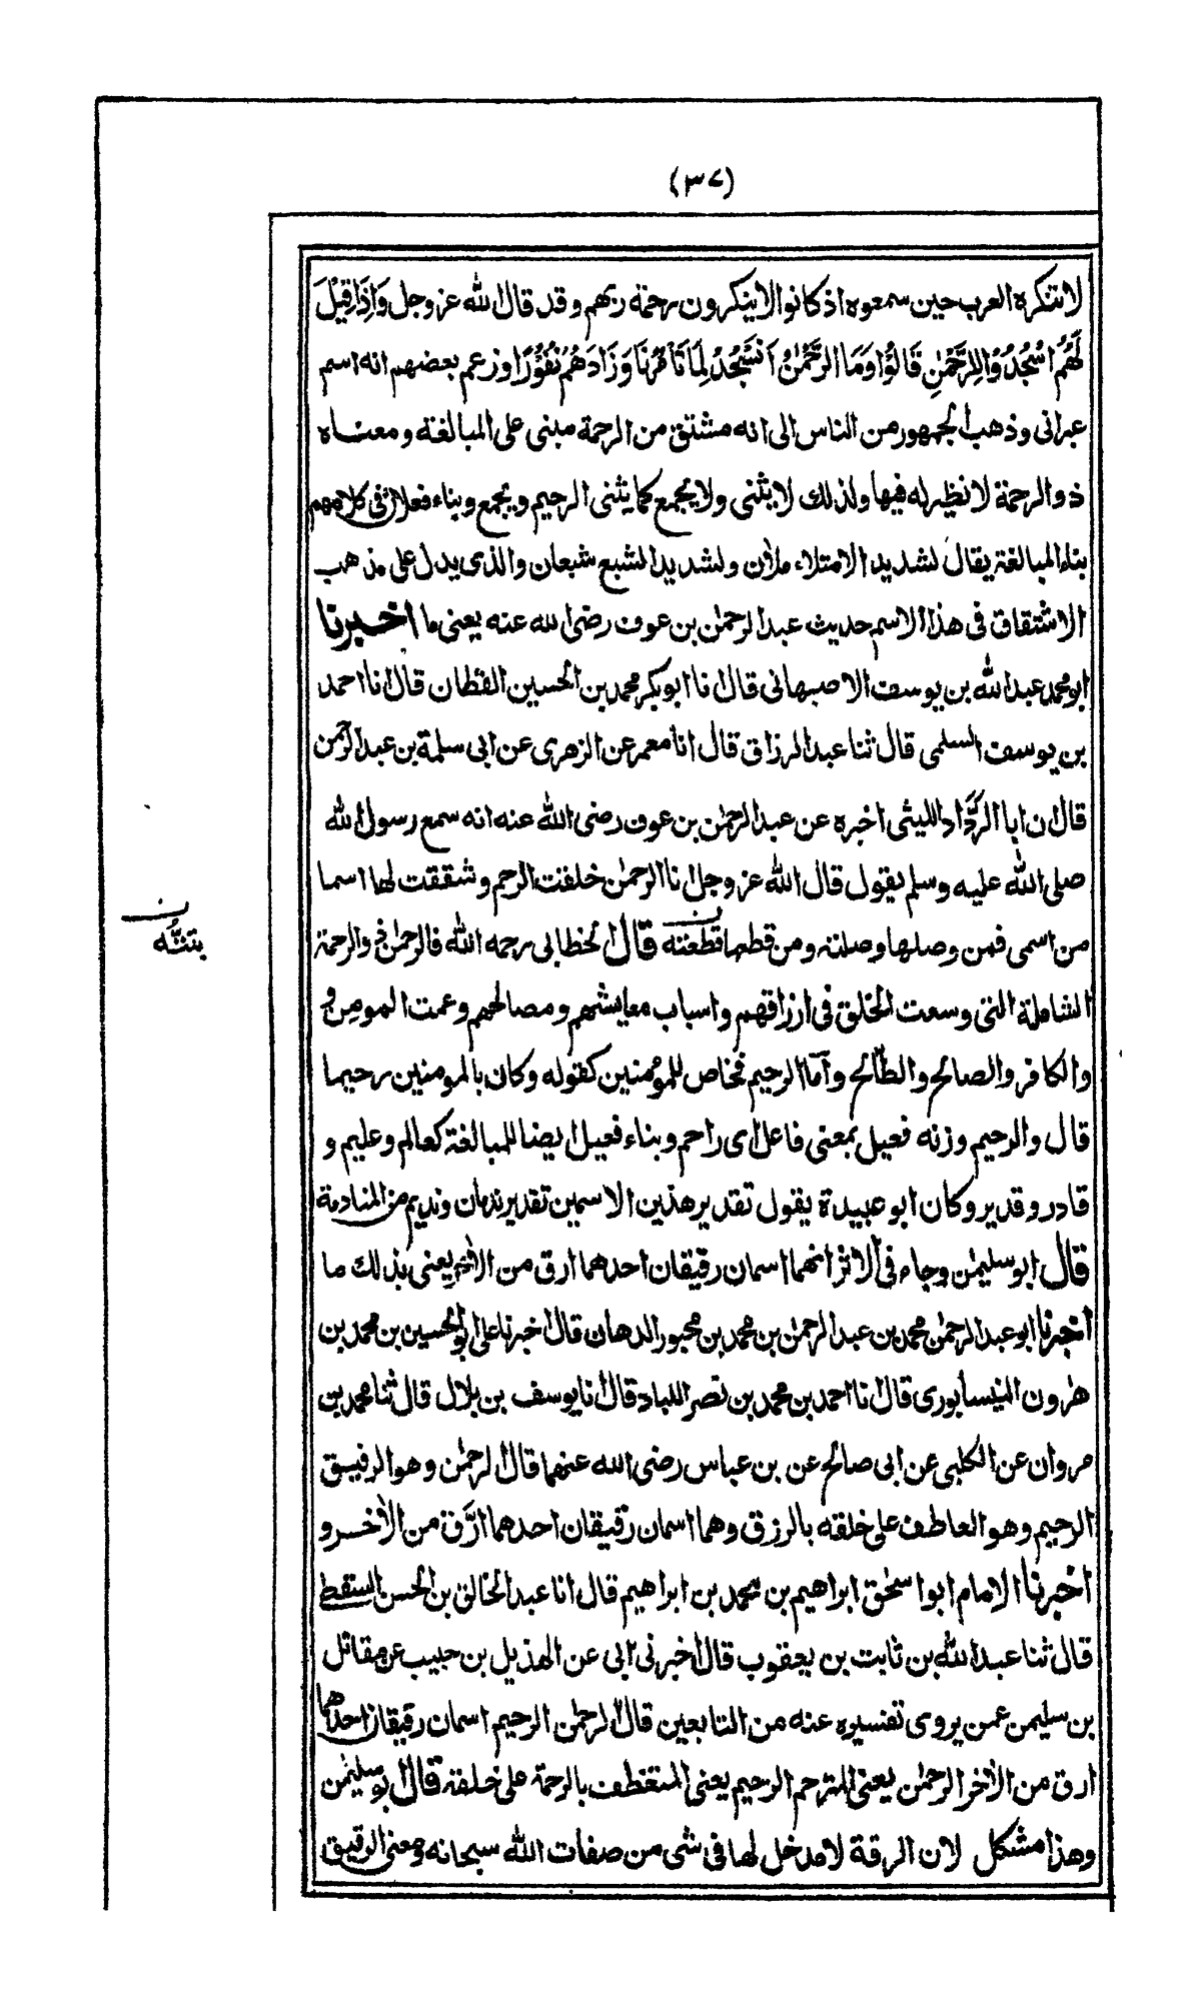 (٣٧)
لا تنكره العرب حين سمعوه اذ كانوا لا ينكرون رحمة ربهم وقد قال الله عز وجل وَاِذَا قِيْلَ
لَهُمُ اسْجُدُوْا لِلرَّحْمٰنِ قَالُوْا وَمَا الرَّحْمٰنُ اَنَسْجُدُ لِمَا تَاْمُرُنَا وَزَادَهُمْ نُفُوْرًا وزعم بعضهم انه اسم
عبرانى وذهب الجمهور من الناس الى انه مشتق من الرحمة مبنى على المبالغة ومعناه
ذو الرحمة لا نظير له فيها ولذلك لا يثنى ولا يجمع كما يثنى الرحيم ويجمع وبناء فعلان فى كلامهم
بناء المبالغة يقال لشديد الامتلاء ملأن ولشديد الشبع شبعان والذى يدل على مذهب
الاشتقاق فى هذا الاسم حديث عبد الرحمٰن بن عوف رضى الله عنه يعنى ما اخبرنا
ابو محمد عبد الله بن يوسف الاصبهانى قال انا ابو بكر محمد بن الحسين القطان قال انا احمد
بن يوسف السلمى قال ثنا عبد الرزاق قال انا معمر عن الزهرى عن ابى سلمة بن عبد الرحمن
قال ان ابا الرَّدَّاد الليثى اخبره عن عبد الرحمٰن بن عوف رضى الله عنه انه سمع رسول الله
صلى الله عليه وسلم يقول قال الله عز وجل انا الرحمٰن خلقت الرحم وشققت لها اسما
من اسمى فمن وصلها وصلته ومن قطعها قطعته قال الخطابى رحمه الله فالرحمٰن ذو الرحمة
ن
بتتُّه
الشاملة التى وسعت الخلق فى ارزاقهم واسباب معايشهم ومصالحهم وعمت المومن و
والكافر والصالح والطالح وآما الرحيم فخاص للمؤمنين كقوله وكان بالمومنين رحيما
قال والرحيم وزنه فعيل بمعنى فاعل اى راحم وبناء فعيل ايضا للمبالغة كعالم وعليم و
قادر وقدير وكان ابو عبيدة يقول تقدير هذين الاسمين تقدير ندمان ونديم من المنادمة
قال ابو سليمٰن وجاء فى الاثر انهما اسمان رقيقان احدهما ارق من الاٰخر يعنى بذلك ما
اخبرنا ابو عبد الرحمٰن محمد بن عبد الرحمٰن بن محمد بن محبور الدهان قال اخبرنا على ابو الحسين بن محمد بن
هٰرون النيسابورى قال انا احمد بن محمد بن نصر اللباد قال انا يوسف بن بلال قال ثنا محمد بن
مروان عن الكلبى عن ابى صالح عن بن عباس رضى الله عنهما قال الرحمٰن وهو الرفيق
الرحيم وهو العاطف على خلقه بالرزق وهما اسمان رقيقان احدهما ارَّق من الاٰخر و
اخبرنا الامام ابو اسحٰق ابراهيم بن محمد بن ابراهيم قال انا عبد الخالق بن الحسن السقطى
قال ثنا عبد الله بن ثابت بن يعقوب قال اخبرنى ابى عن الهذيل بن حبيب عن مقاتل
بن سليمن عمن يروى تفسيره عنه من التابعين قال الرحمٰن الرحيم اسمان رقيقان احدهما
ارق من الاٰخر الرحمٰن يعنى المترحم الرحيم يعنى المتعطف بالرحمة على خلقه قال ابو سليمٰن
وهذا مشكل لان الرقة لا مدخل لها فى شى من صفات الله سبحانه ومعنى الرقيق